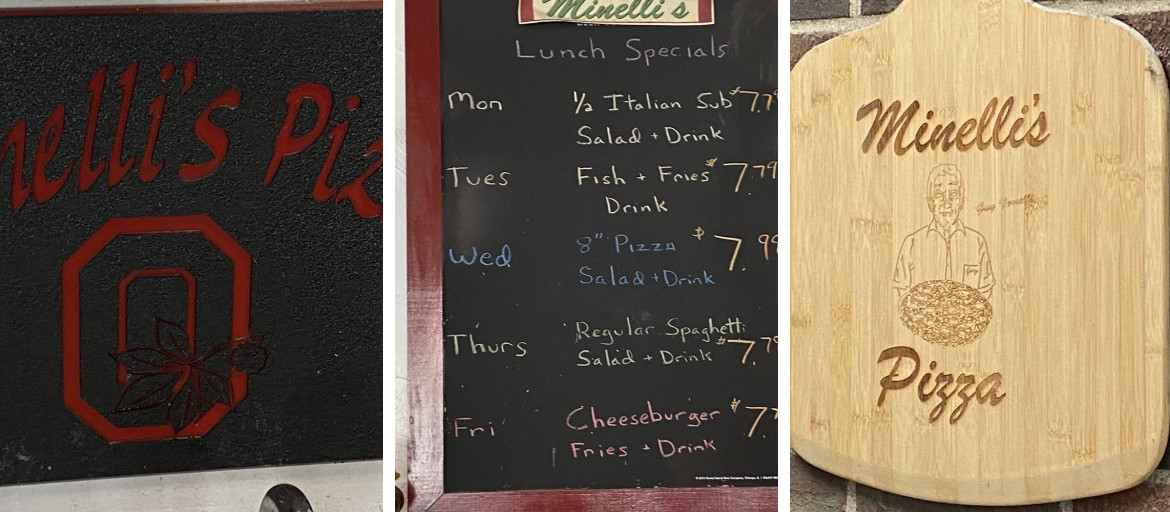 nelli's Piz
Minelli's
Lunch Specials
Mon
½ Italian Sub $7.79
Salad + Drink
Tues
Fish + Fries $7.79
Drink
Wed
8" Pizza $7.99
Salad + Drink
Thurs
Regular Spaghetti
Salad + Drink $7.79
Fri
Cheeseburger $7.7
Fries + Drink
Minelli's
Pizza